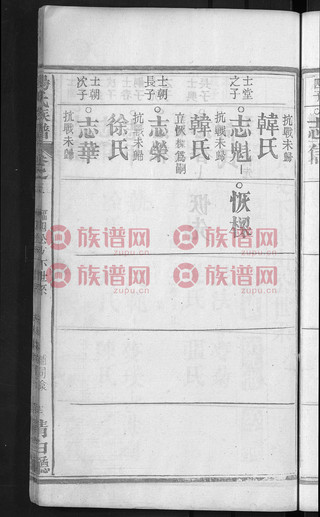 抗戰未歸
韓氏
士堂之子
志魁
恢樑
抗戰未歸
韓氏
立恢樑為嗣
士朝長子
志榮
抗戰未歸
徐氏
士朝次子
志華
抗戰未歸
族譜
卷之
清白
族谱网
zupu.cn
族谱网
zupu.cn
族谱网
zupu.cn
族谱网
zupu.cn
族谱网
zupu.cn
族谱网
zupu.cn